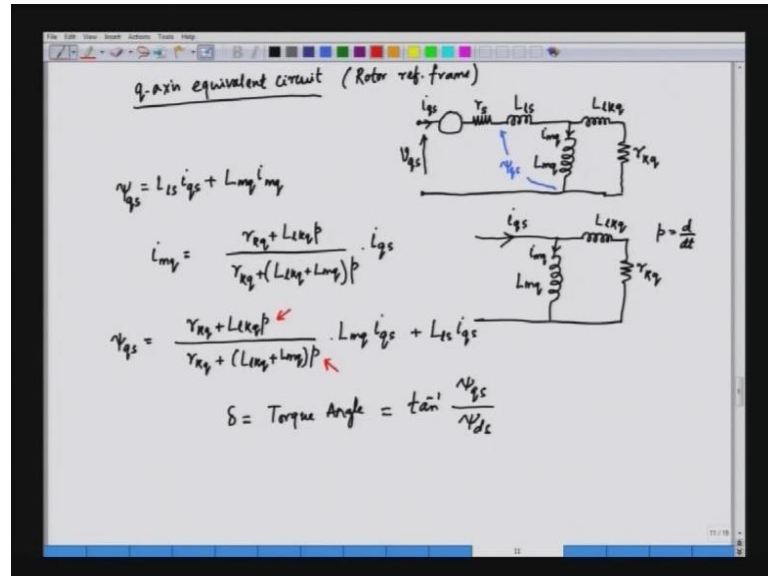 File Edit View Insert Actions Tools Help
q-axis equivalent circuit (Rotor ref. frame)
iqs rs Lls Llkq
imq
Vqs ψqs Lmq rkq
ψqs = Lls iqs + Lmq imq
iqs Llkq p = d/dt
imq
Lmq rkq
imq = (rkq + Llkq p) / (rkq + (Llkq + Lmq)p) . iqs
ψqs = (rkq + Llkq p) / (rkq + (Llkq + Lmq)p) . Lmq iqs + Lls iqs
δ = Torque Angle = tan⁻¹ ψqs / ψds
11/18
11